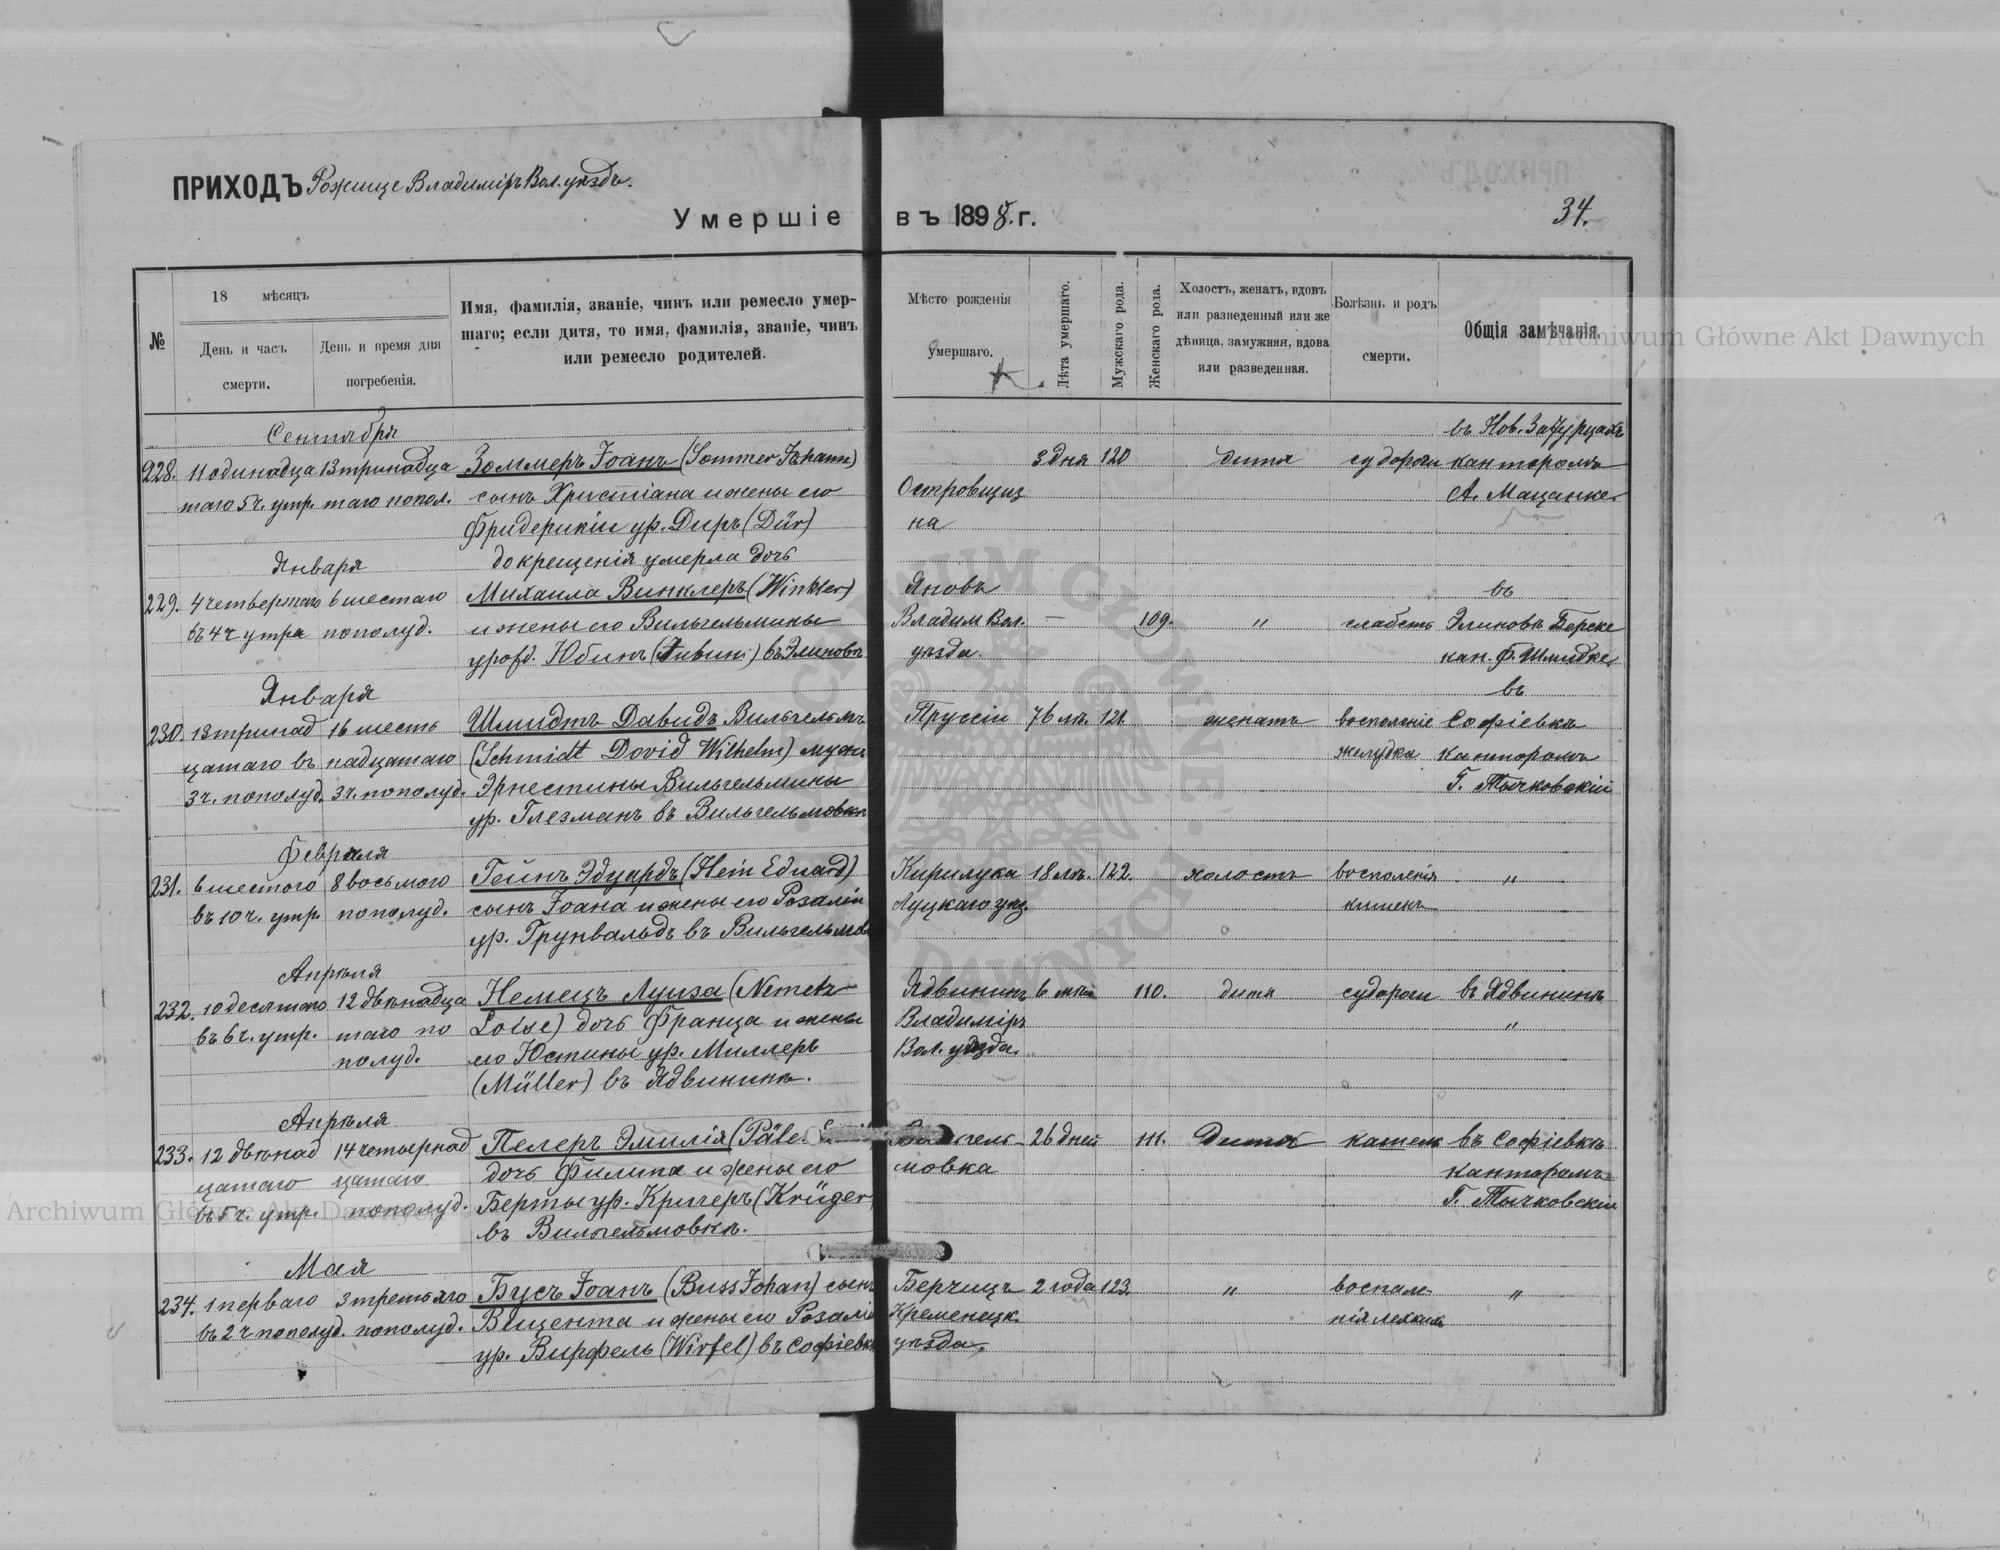 ПРИХОДЪ Рожище Владиміръ Вол. уѣздъ.
Умершіе въ 1898.г.
34.
№
18 мѣсяцъ
День и часъ смерти.
День и время дня погребенія.
Имя, фамилія, званіе, чинъ или ремесло умер-
шаго; если дитя, то имя, фамилія, званіе, чинъ
или ремесло родителей.
Мѣсто рожденія
умершаго.
Лѣта умершаго.
Мужскаго рода.
Женскаго рода.
Холостъ, женатъ, вдовъ
или разведенный или же
дѣвица, замужняя, вдова
или разведенная.
Болѣзнь и родъ
смерти.
Общія замѣчанія.
Archiwum Główne Akt Dawnych
Сентября
въ Нов. Затурцахъ
228. 11 одинадца 13 тринадца Зоммеръ Іоанъ (Sommer Johann) 3 дня 120 дитя судороги канторомъ
таго 5 ч. утр. таго попол. сынъ Христіана и жены его Островщиз А. Мацанке
Фридерикіи ур. Диръ (Dür) на
Января до крещенія умерла дочь
229. 4 четвертаго 6 шестаго Михаила Винклеръ (Winkler) Яновъ въ
въ 4 ч утра пополуд. и жены его Вильгельмины Владим Вол. — 109. " слабость Элиновъ Берске
урожд. Юбинъ въ Элиновѣ уѣзда. кан. Ф. Шмидке
Января въ
230. 13 тринад 16 шесть Шмидтъ Давидъ Вильгельмъ Пруссіи 76 лѣ. 121. женатъ воспаленіе Софіевкѣ
цатаго въ надцатаго (Schmidt David Wilhelm) мужъ желудка канторомъ
3 ч. пополуд. 3 ч. пополуд. Эрнестины Вильгельмины Г. Тычковскій
ур. Глезманъ въ Вильгельмовкѣ
Февраля
231. 6 шестого 8 восьмого Гейнъ Эдуардъ (Hein Eduard) Кирилука 18 лѣ. 122. холостъ воспаленія "
въ 10 ч. утр. пополуд. сынъ Іоана и жены его Розаліи Луцкаго уѣз. кишекъ
ур. Грунвальдъ въ Вильгельмов
Апрѣля
232. 10 десятаго 12 двѣнадца Немецъ Луиза (Nemetz Ядвининъ 6 мѣс 110. дитя судороги въ Ядвининѣ
въ 6 ч. утр. таго по Loise) дочь Франца и жены Владиміръ "
полуд. его Юстины ур. Миллеръ Вол. уѣзда.
(Müller) въ Ядвининѣ.
Апрѣля
233. 12 двѣнад 14 четырнад Пелеръ Эмилія (Päle Вильгель- 26 дней 111. Дитя кашель въ Софіевкѣ
цатаго цатаго дочь Филипа и жены его мовка канторомъ
въ 5 ч. утр. пополуд. Берты ур. Кригеръ (Krüger) Г. Тычковскій
въ Вильгельмовкѣ.
Archiwum Główne Akt Dawnych
Мая
234. 1 перваго 3 третьяго Бусъ Іоанъ (Buss Johan) сынъ Берчицъ 2 года 123. " воспале- "
въ 2 ч пополуд. пополуд. Вицента и жены его Розаліи Кременецк. нія легкихъ
ур. Вирфель (Wirfel) въ Софіевкѣ уѣзда.